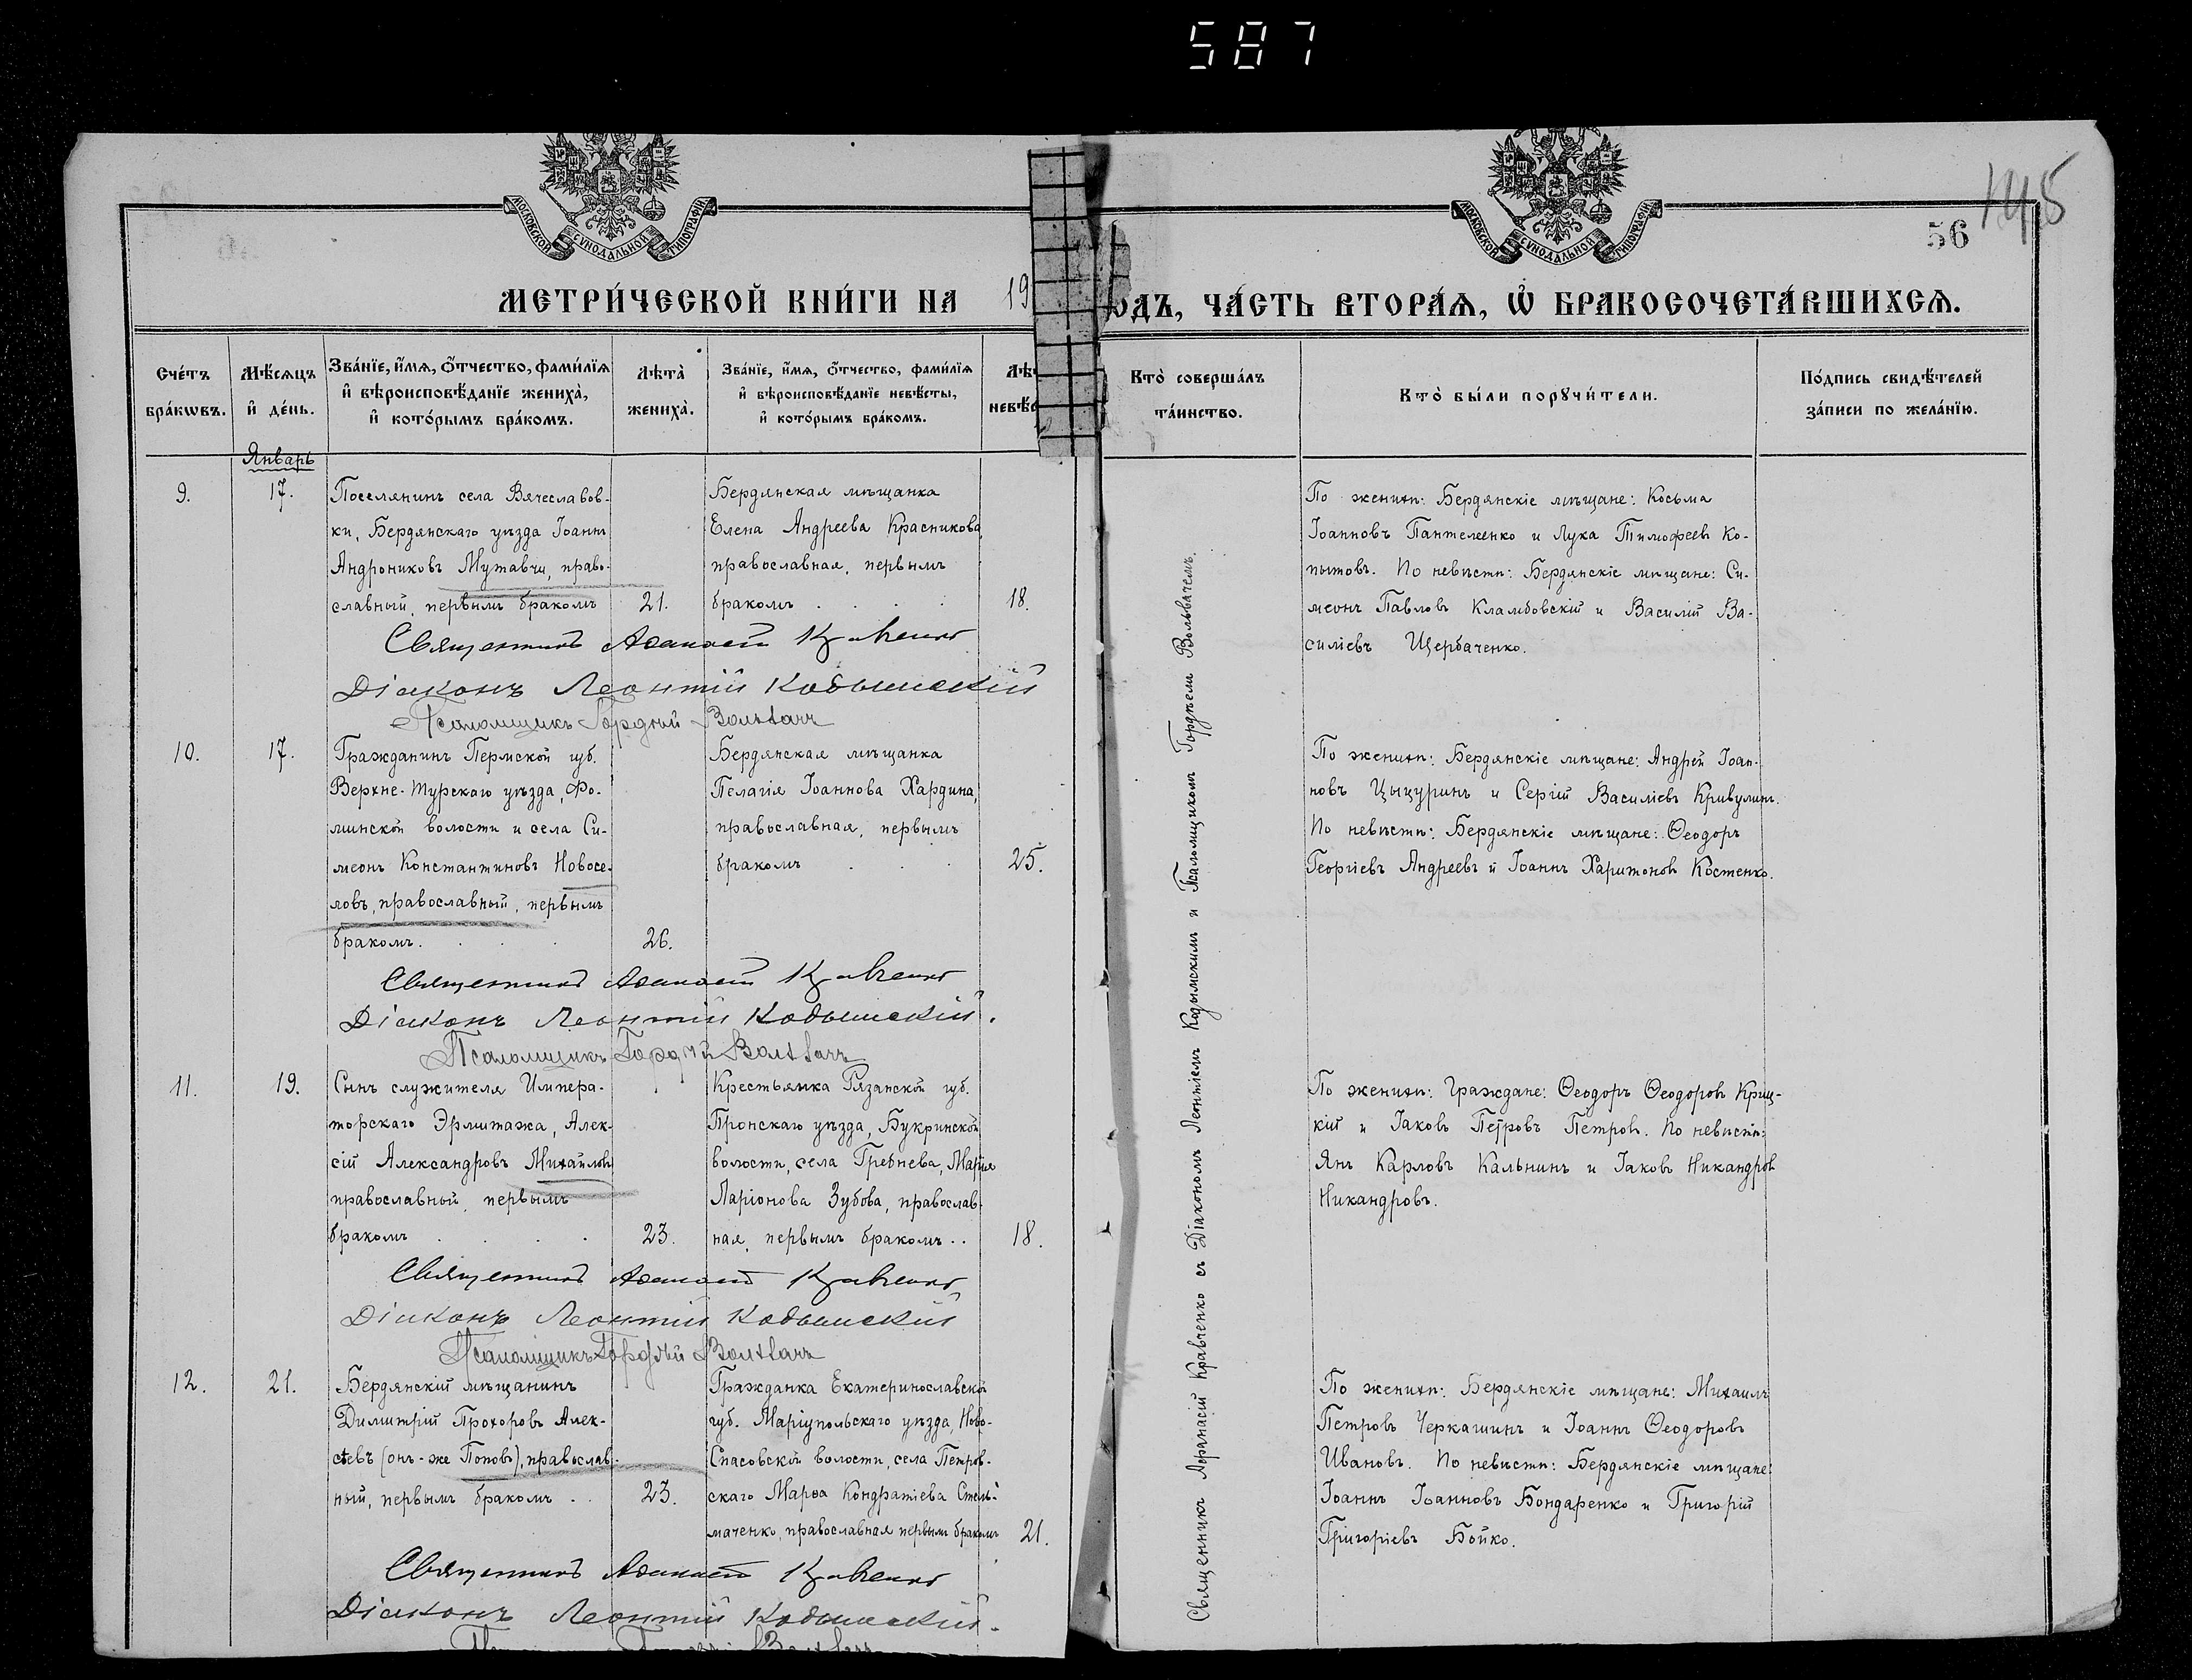 587
МОСКОВСКОЙ СѴНОДАЛЬНОЙ ТИПОГРАФІИ
МОСКОВСКОЙ СѴНОДАЛЬНОЙ ТИПОГРАФІИ
56
145
МЕТРИ́ЧЕСКОЙ КНИ́ГИ НА 19 ОДЪ, ЧА́СТЬ ВТОРА́Ѧ, Ѡ БРАКОСОЧЕТА́ВШИХСѦ.
Сче́тъ бра́кѡвъ.
Мѣ́сяцъ и҆ де́нь.
Зва́нїе, и҆́мя, ѻ҆́тчество, фами́лїя
и҆ вѣроисповѣ́данїе жениха̀,
и҆ кото́рымъ бра́комъ.
Лѣта̀ жениха̀.
Зва́нїе, и҆́мя, ѻ҆́тчество, фами́лїя
и҆ вѣроисповѣ́данїе невѣ́сты,
и҆ кото́рымъ бра́комъ.
Лѣ
невѣс
Кто̀ соверша́лъ
та́инство.
Кто̀ бы́ли порꙋчи́тели.
По́дпись свидѣ́телей
за́писи по жела́нїю.
Январь
9.
17.
Поселянинъ села Вячеславов-
ки, Бердянскаго уѣзда Іоаннъ
Андрониковъ Мутавчи, право-
славный, первымъ бракомъ
21.
Бердянская мѣщанка
Елена Андреева Красникова,
православная, первымъ
бракомъ . . . .
18.
По женихѣ: Бердянскіе мѣщане: Косьма
Іоанновъ Пантелеенко и Лука Тимофеевъ Ко-
пытовъ. По невѣстѣ: Бердянскіе мѣщане: Си-
меонъ Павловъ Кламбовскій и Василій Ва-
силіевъ Щербаченко.
Священникъ Афанасій Кравченко
Діаконъ Леонтій Кодымскій
Псаломщикъ Гордѣй Вольвачъ
10.
17.
Гражданинъ Пермской губ.
Верхне-Турскаго уѣзда, Фо-
минской волости и села Си-
меонъ Константиновъ Новосе-
ловъ, православный, первымъ
бракомъ. . . .
26.
Бердянская мѣщанка
Пелагія Іоаннова Хардина,
православная, первымъ
бракомъ . . .
25.
По женихѣ: Бердянскіе мѣщане: Андрей Іоан-
новъ Цыцуринъ и Сергій Василіевъ Кривулинъ.
По невѣстѣ: Бердянскіе мѣщане: Ѳеодоръ
Георгіевъ Андреевъ и Іоаннъ Харитоновъ Костенко.
Священникъ Афанасій Кравченко
Діаконъ Леонтій Кодымскій.
Псаломщикъ Гордѣй Вольвачъ
11.
19.
Сынъ служителя Импера-
торскаго Эрмитажа, Алек-
сій Александровъ Михайловъ
православный, первымъ
бракомъ . . . .
23.
Крестьянка Рязанской губ.
Пронскаго уѣзда, Букринской
волости, села Гребнева, Марія
Ларіонова Зубова, православ-
ная, первымъ бракомъ . .
18.
По женихѣ: Граждане: Ѳеодоръ Ѳеодоровъ Криц-
кій и Іаковъ Петровъ Петровъ. По невѣстѣ:
Янъ Карловъ Кальнинъ и Іаковъ Никандровъ
Никандровъ.
Священникъ Афанасій Кравченко
Діаконъ Леонтій Кодымскій
Псаломщикъ Гордѣй Вольвачъ
12.
21.
Бердянскій мѣщанинъ
Димитрій Прохоровъ Алек-
сѣевъ (онъ-же Поповъ), православ-
ный, первымъ бракомъ . .
23.
Гражданка Екатеринославской
губ. Маріупольскаго уѣзда, Ново-
Спасовской волости, села Петров-
скаго Марѳа Кондратіева Стель-
маченко, православная первымъ бракомъ
21.
По женихѣ: Бердянскіе мѣщане: Михаилъ
Петровъ Черкашинъ и Іоаннъ Ѳеодоровъ
Ивановъ. По невѣстѣ: Бердянскіе мѣщане:
Іоаннъ Іоанновъ Бондаренко и Григорій
Григоріевъ Бойко.
Священникъ Афанасій Кравченко
Діаконъ Леонтій Кодымскій.
Священникъ Афанасій Кравченко съ Діакономъ Леонтіемъ Кодымскимъ и Псаломщикомъ Гордѣемъ Вольвачемъ.